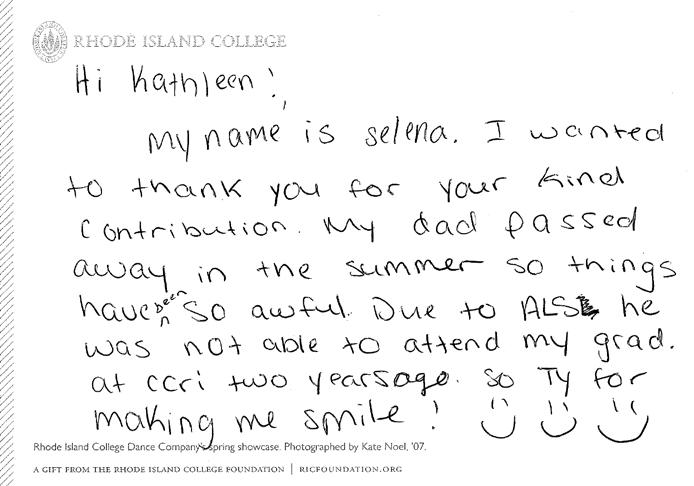 RHODE ISLAND COLLEGE
Hi Kathleen!
My name is selena. I wanted
to thank you for your kind
contribution. My dad passed
away in the summer so things
have been so awful. Due to ALS he
was not able to attend my grad.
at ccri two years ago. So Ty for
making me smile!
Rhode Island College Dance Company's spring showcase. Photographed by Kate Noel, '07.
A GIFT FROM THE RHODE ISLAND COLLEGE FOUNDATION | RICFOUNDATION.ORG